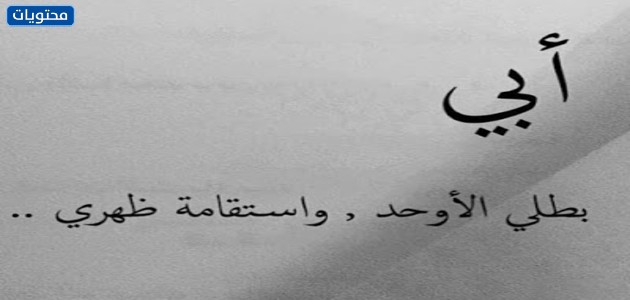 محتويات
أبي
بطلي الأوحد , واستقامة ظهري ..